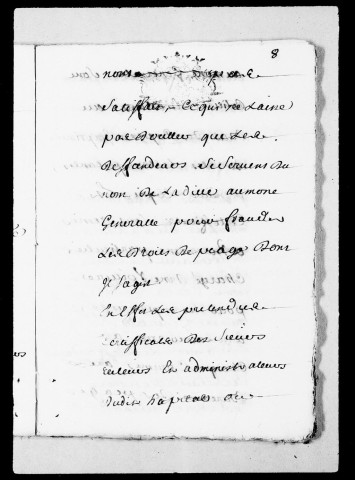 8
Satisfait, Ce qui ne Laisse
pas Douter que Les
Deffandeurs Se Servent Du
nom De Ladite aumone
Generalle pour frauder
Les Droits De peage Dont
Il Sagit
En Effet Les pretendus
Certifficats Des Sieurs
Recteurs Et administrateurs
dudit hapital ou